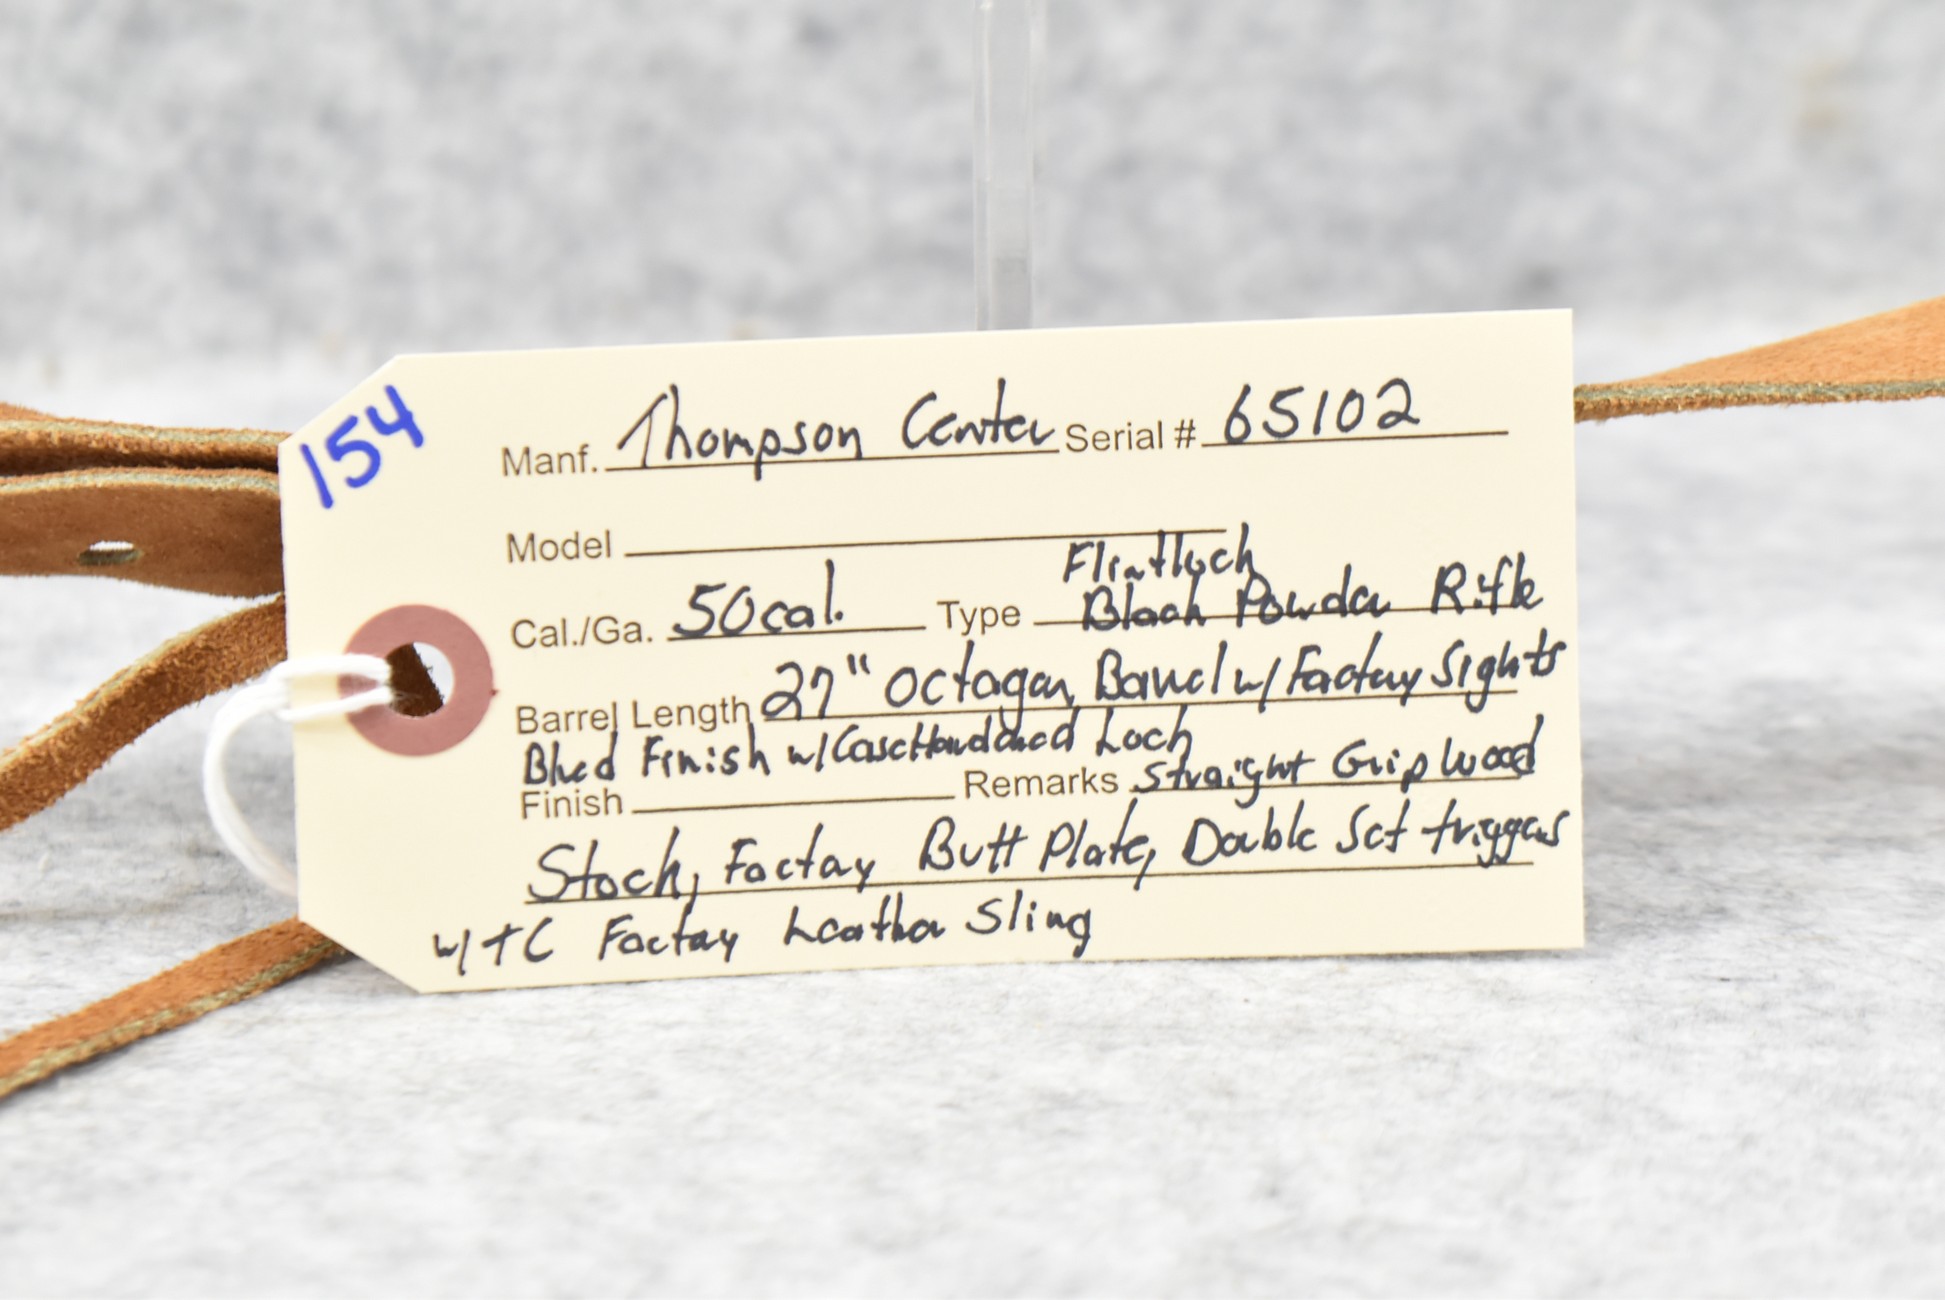 154
Manf. Thompson Center Serial # 65102
Model
Flintlock
Cal./Ga. 50cal. Type Black Powder Rifle
Barrel Length 27" Octagon Barrel w/ Factory Sights
Blued Finish w/ Case Hardened Lock
Finish Remarks Straight Grip Wood
Stock, Factory Butt Plate, Double Set triggers
w/ TC Factory Leather Sling